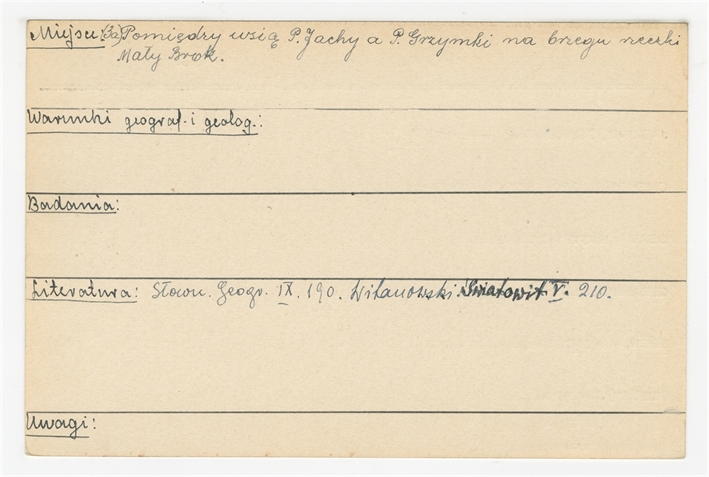 Miejsce: (3a) Pomiędzy wsią P. Jachy a P. Grzymki na brzegu rzeczki
Mały Brok.
Warunki geograf. i geolog.:
Badania:
Literatura: Słown. Geogr. IX. 190. Witanowski. Światowit V. 210.
Uwagi: